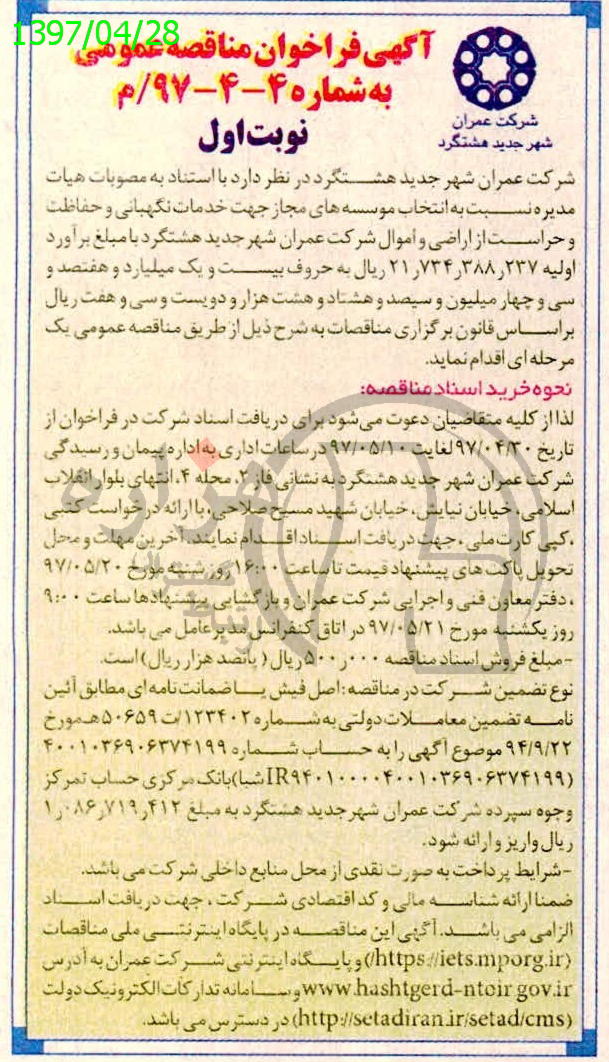 1397/04/28
آگهی فراخوان مناقصه عمومی
به شماره ۴-۴-۹۷/م
نوبت اول
شرکت عمران
شهر جدید هشتگرد
شرکت عمران شهر جدید هشتگرد در نظر دارد با استناد به مصوبات هیات
مدیره نسبت به انتخاب موسسه های مجاز جهت خدمات نگهبانی و حفاظت
و حراست از اراضی و اموال شرکت عمران شهر جدید هشتگرد با مبلغ برآورد
اولیه ۲۱٫۷۳۴٫۳۸۸٫۲۳۷ ریال به حروف بیست و یک میلیارد و هفتصد و
سی و چهار میلیون و سیصد و هشتاد و هشت هزار و دویست و سی و هفت ریال
براساس قانون برگزاری مناقصات به شرح ذیل از طریق مناقصه عمومی یک
مرحله ای اقدام نماید.
نحوه خرید اسناد مناقصه:
لذا از کلیه متقاضیان دعوت می شود برای دریافت اسناد شرکت در فراخوان از
تاریخ ۹۷/۰۴/۳۰ لغایت ۹۷/۰۵/۱۰ در ساعات اداری به اداره پیمان و رسیدگی
شرکت عمران شهر جدید هشتگرد به نشانی فاز ۲، محله ۴، انتهای بلوار انقلاب
اسلامی، خیابان نیایش، خیابان شهید مسیح صلاحی، با ارائه درخواست کتبی
، کپی کارت ملی، جهت دریافت اسناد اقدام نمایند. آخرین مهلت و محل
تحویل پاکت های پیشنهاد قیمت تا ساعت ۱۶:۰۰ روز شنبه مورخ ۹۷/۰۵/۲۰
، دفتر معاون فنی و اجرایی شرکت عمران و بازگشایی پیشنهادها ساعت ۹:۰۰
روز یکشنبه مورخ ۹۷/۰۵/۲۱ در اتاق کنفرانس مدیرعامل می باشد.
-مبلغ فروش اسناد مناقصه ۵۰۰٫۰۰۰ ریال (پانصد هزار ریال) است.
نوع تضمین شرکت در مناقصه: اصل فیش یا ضمانت نامه ای مطابق آئین
نامه تضمین معاملات دولتی به شماره ۱۲۳۴۰۲/ت ۵۰۶۵۹ هـ مورخ
۹۴/۹/۲۲ موضوع آگهی را به حساب شماره ۴۰۰۱۰۳۶۹۰۶۳۷۴۱۹۹
(IR۹۴۰۱۰۰۰۰۴۰۰۱۰۳۶۹۰۶۳۷۴۱۹۹ شبا) بانک مرکزی حساب تمرکز
وجوه سپرده شرکت عمران شهر جدید هشتگرد به مبلغ ۱٫۰۸۶٫۷۱۹٫۴۱۲
ریال واریز و ارائه شود.
-شرایط پرداخت به صورت نقدی از محل منابع داخلی شرکت می باشد.
ضمنا ارائه شناسه مالی و کد اقتصادی شرکت، جهت دریافت اسناد
الزامی می باشد. آگهی این مناقصه در پایگاه اینترنتی ملی مناقصات
(https://iets.mporg.ir/) و پایگاه اینترنتی شرکت عمران به آدرس
www.hashtgerd-ntoir.gov.ir و سامانه تدارکات الکترونیک دولت
(http://setadiran.ir/setad/cms) در دسترس می باشد.